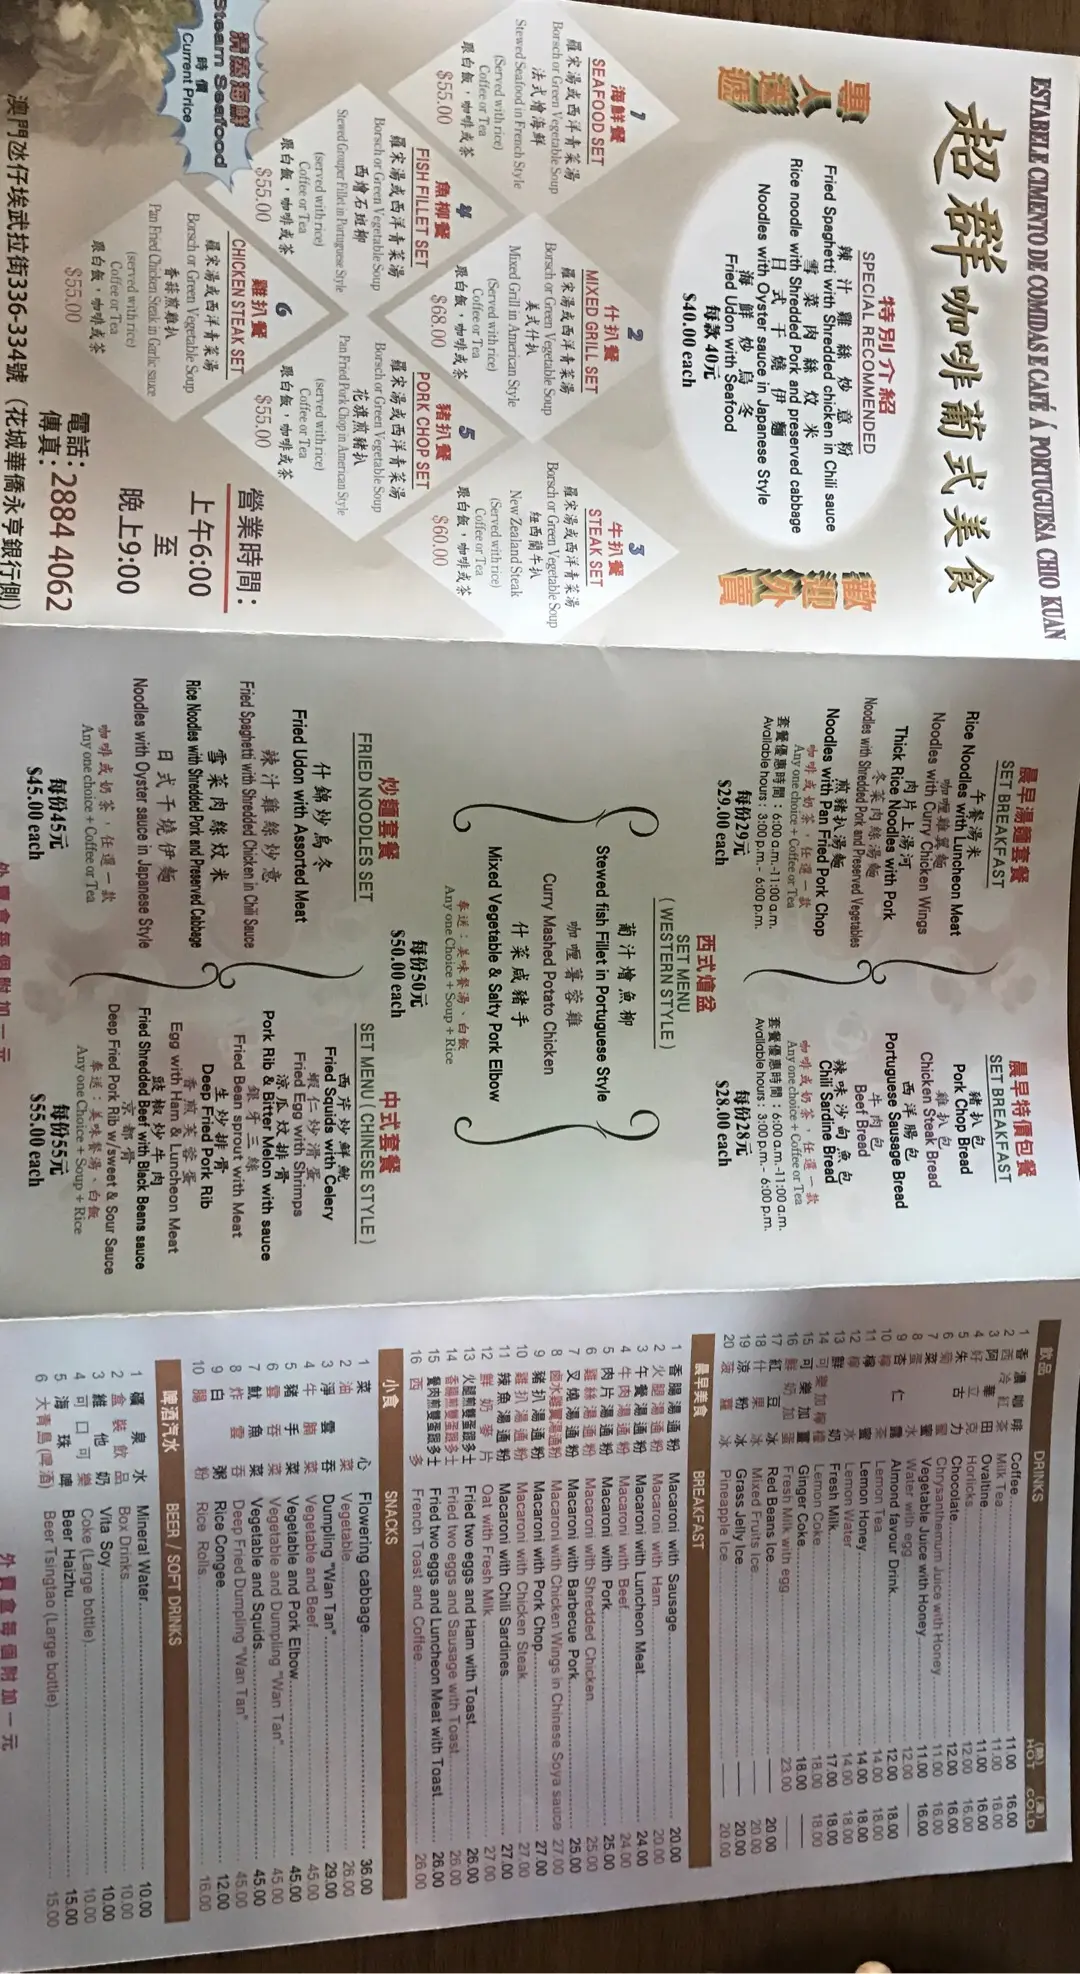 ESTABELECIMENTO DE COMIDAS E CAFÉ Á PORTUGUESA CHIO KUAN
超群咖啡葡式美食
專人送遞
歡迎外賣
特別介紹
SPECIAL RECOMMENDED
辣汁雞絲炒意粉
Fried Spaghetti with Shredded chicken in Chili sauce
雪菜肉絲炆米
Rice noodle with Shredded Pork and preserved cabbage
日式干燒伊麵
Noodles with Oyster sauce in Japanese Style
海鮮炒烏冬
Fried Udon with Seafood
每款40元
$40.00 each
1
海鮮餐
SEAFOOD SET
羅宋湯或西洋青菜湯
Borsch or Green Vegetable Soup
法式燴海鮮
Stewed Seafood in French Style
(Served with rice)
Coffee or Tea
跟白飯，咖啡或茶
$55.00
2
什扒餐
MIXED GRILL SET
羅宋湯或西洋青菜湯
Borsch or Green Vegetable Soup
美式什扒
Mixed Grill in American Style
(Served with rice)
Coffee or Tea
跟白飯，咖啡或茶
$68.00
3
牛扒餐
STEAK SET
羅宋湯或西洋青菜湯
Borsch or Green Vegetable Soup
紐西蘭牛扒
New Zealand Steak
(Served with rice)
Coffee or Tea
跟白飯，咖啡或茶
$60.00
4
魚柳餐
FISH FILLET SET
羅宋湯或西洋青菜湯
Borsch or Green Vegetable Soup
西燴石斑柳
Stewed Grouper Fillet in Portuguese Style
(served with rice)
Coffee or Tea
跟白飯，咖啡或茶
$55.00
5
豬扒餐
PORK CHOP SET
羅宋湯或西洋青菜湯
Borsch or Green Vegetable Soup
花旗煎豬扒
Pan Fried Pork Chop in American Style
(served with rice)
Coffee or Tea
跟白飯，咖啡或茶
$55.00
6
雞扒餐
CHICKEN STEAK SET
羅宋湯或西洋青菜湯
Borsch or Green Vegetable Soup
香蒜煎雞扒
Pan Fried Chicken Steak in Garlic sauce
(served with rice)
Coffee or Tea
跟白飯，咖啡或茶
$55.00
清蒸海鮮
Steam Seafood
時價
Current Price
營業時間：
上午6:00
至
晚上9:00
電話：2884 4062
傳真：
澳門氹仔埃武拉街336-334號（花城華僑永亨銀行側）
晨早湯麵套餐
SET BREAKFAST
午餐湯米
Rice Noodles with Luncheon Meat
咖喱雞翼麵
Noodles with Curry Chicken Wings
肉片上湯河
Thick Rice Noodles with Pork
冬菜肉絲湯麵
Noodles with Shredded Pork and Preserved Vegetables
煎豬扒湯麵
Noodles with Pan Fried Pork Chop
咖啡或奶茶，任選一款
Any one choice + Coffee or Tea
套餐優惠時間：6:00a.m.-11:00a.m.
Available hours : 3:00p.m.- 6:00p.m.
每份29元
$29.00 each
晨早特價包餐
SET BREAKFAST
豬扒包
Pork Chop Bread
雞扒包
Chicken Steak Bread
西洋腸包
Portuguese Sausage Bread
牛肉包
Beef Bread
辣味沙甸魚包
Chili Sardine Bread
咖啡或奶茶，任選一款
Any one choice + Coffee or Tea
套餐優惠時間：6:00a.m.-11:00a.m.
Available hours : 3:00p.m.- 6:00p.m.
每份28元
$28.00 each
西式燴盆
SET MENU
( WESTERN STYLE )
葡汁燴魚柳
Stewed fish Fillet in Portuguese Style
咖喱薯蓉雞
Curry Mashed Potato Chicken
什菜咸豬手
Mixed Vegetable & Salty Pork Elbow
奉送：美味餐湯、白飯
Any one Choice + Soup + Rice
每份50元
$50.00 each
炒麵套餐
FRIED NOODLES SET
什錦炒烏冬
Fried Udon with Assorted Meat
辣汁雞絲炒意
Fried Spaghetti with Shredded Chicken in Chili Sauce
雪菜肉絲炆米
Rice Noodles with Shredded Pork and Preserved Cabbage
日式干燒伊麵
Noodles with Oyster sauce in Japanese Style
咖啡或奶茶，任選一款
Any one choice + Coffee or Tea
每份45元
$45.00 each
中式套餐
SET MENU ( CHINESE STYLE )
西芹炒鮮魷
Fried Squids with Celery
蝦仁炒滑蛋
Fried Egg with Shrimps
涼瓜炆排骨
Pork Rib & Bitter Melon with sauce
銀牙三絲
Fried Bean sprout with Meat
生炒排骨
Deep Fried Pork Rib
香煎芙蓉蛋
Egg with Ham & Luncheon Meat
豉椒炒牛肉
Fried Shredded Beef with Black Beans sauce
京都骨
Deep Fried Pork Rib w/sweet & Sour Sauce
奉送：美味餐湯、白飯
Any one Choice + Soup + Rice
每份55元
$55.00 each
外賣盒每個附加一元
飲品 DRINKS (熱)HOT (凍)COLD
1 香濃咖啡 Coffee 11.00 16.00
2 西冷紅茶 Milk Tea 11.00 16.00
3 阿華田 Ovaltine 11.00 16.00
4 好立克 Horlicks 12.00 16.00
5 朱古力 Chocolate 12.00 16.00
6 菊蜜 Chrysathemum Juice with Honey 11.00 16.00
7 菜蜜 Vegetable Juice with Honey 11.00 16.00
8 蛋水 Water with egg 12.00
9 杏仁露 Almond favour Drink 12.00 18.00
10 檸茶 Lemon Tea 14.00 18.00
11 檸蜜 Lemon Honey 14.00 18.00
12 檸水 Lemon Water 14.00 18.00
13 鮮奶 Fresh Milk 17.00 18.00
14 可樂加檸檬 Lemon Coke 18.00 18.00
15 可樂加薑 Ginger Coke 18.00
16 鮮奶加蛋 Fresh Milk with egg 23.00
17 紅豆冰 Red Beans Ice 20.00
18 什果冰 Mixed Fruits Ice 20.00
19 涼粉冰 Grass Jelly Ice 20.00
20 菠蘿冰 Pineapple Ice 20.00
晨早美食 BREAKFAST
1 香腸湯通粉 Macaroni with Sausage 20.00
2 火腿湯通粉 Macaroni with Ham 20.00
3 午餐湯通粉 Macaroni with Luncheon Meat 24.00
4 牛肉湯通粉 Macaroni with Beef 24.00
5 肉片湯通粉 Macaroni with Pork 25.00
6 雞絲湯通粉 Macaroni with Shredded Chicken 25.00
7 叉燒湯通粉 Macaroni with Barbecue Pork 25.00
8 鹵水雞翼湯通粉 Macaroni with Chicken Wings in Chinese Soya sauce 27.00
9 豬扒湯通粉 Macaroni with Pork Chop 27.00
10 雞扒湯通粉 Macaroni with Chicken Steak 27.00
11 辣魚湯通粉 Macaroni with Chili Sardines 27.00
12 鮮奶麥片 Oat with Fresh Milk 27.00
13 火腿煎雙蛋跟多士 Fried two eggs and Ham with Toast 26.00
14 香腸煎雙蛋跟多士 Fried two eggs and Sausage with Toast 26.00
15 餐肉煎雙蛋跟多士 Fried two eggs and Luncheon Meat with Toast 26.00
16 西多 French Toast and Coffee 26.00
小食 SNACKS
1 菜心 Flowering cabbage 36.00
2 油菜 Vegetable 26.00
3 淨雲吞 Dumpling "Wan Tan" 29.00
4 牛腩菜 Vegetable and Beef 45.00
5 豬手菜 Vegetable and Pork Elbow 45.00
6 雲吞菜 Vegetable and Dumpling "Wan Tan" 45.00
7 魷魚菜 Vegetable and Squids 45.00
8 炸雲吞 Deep Fried Dumpling "Wan Tan" 45.00
9 白粥 Rice Congee 12.00
10 腸粉 Rice Rolls 16.00
啤酒汽水 BEER / SOFT DRINKS
1 礦泉水 Mineral Water 10.00
2 盒裝飲品 Box Drinks 10.00
3 維他奶 Vita Soy 10.00
4 可口可樂 Coke (Large bottle) 10.00
5 海珠啤 Beer Haizhu 15.00
6 大青島(啤酒) Beer Tsingtao (Large bottle) 15.00
外賣盒每個附加一元